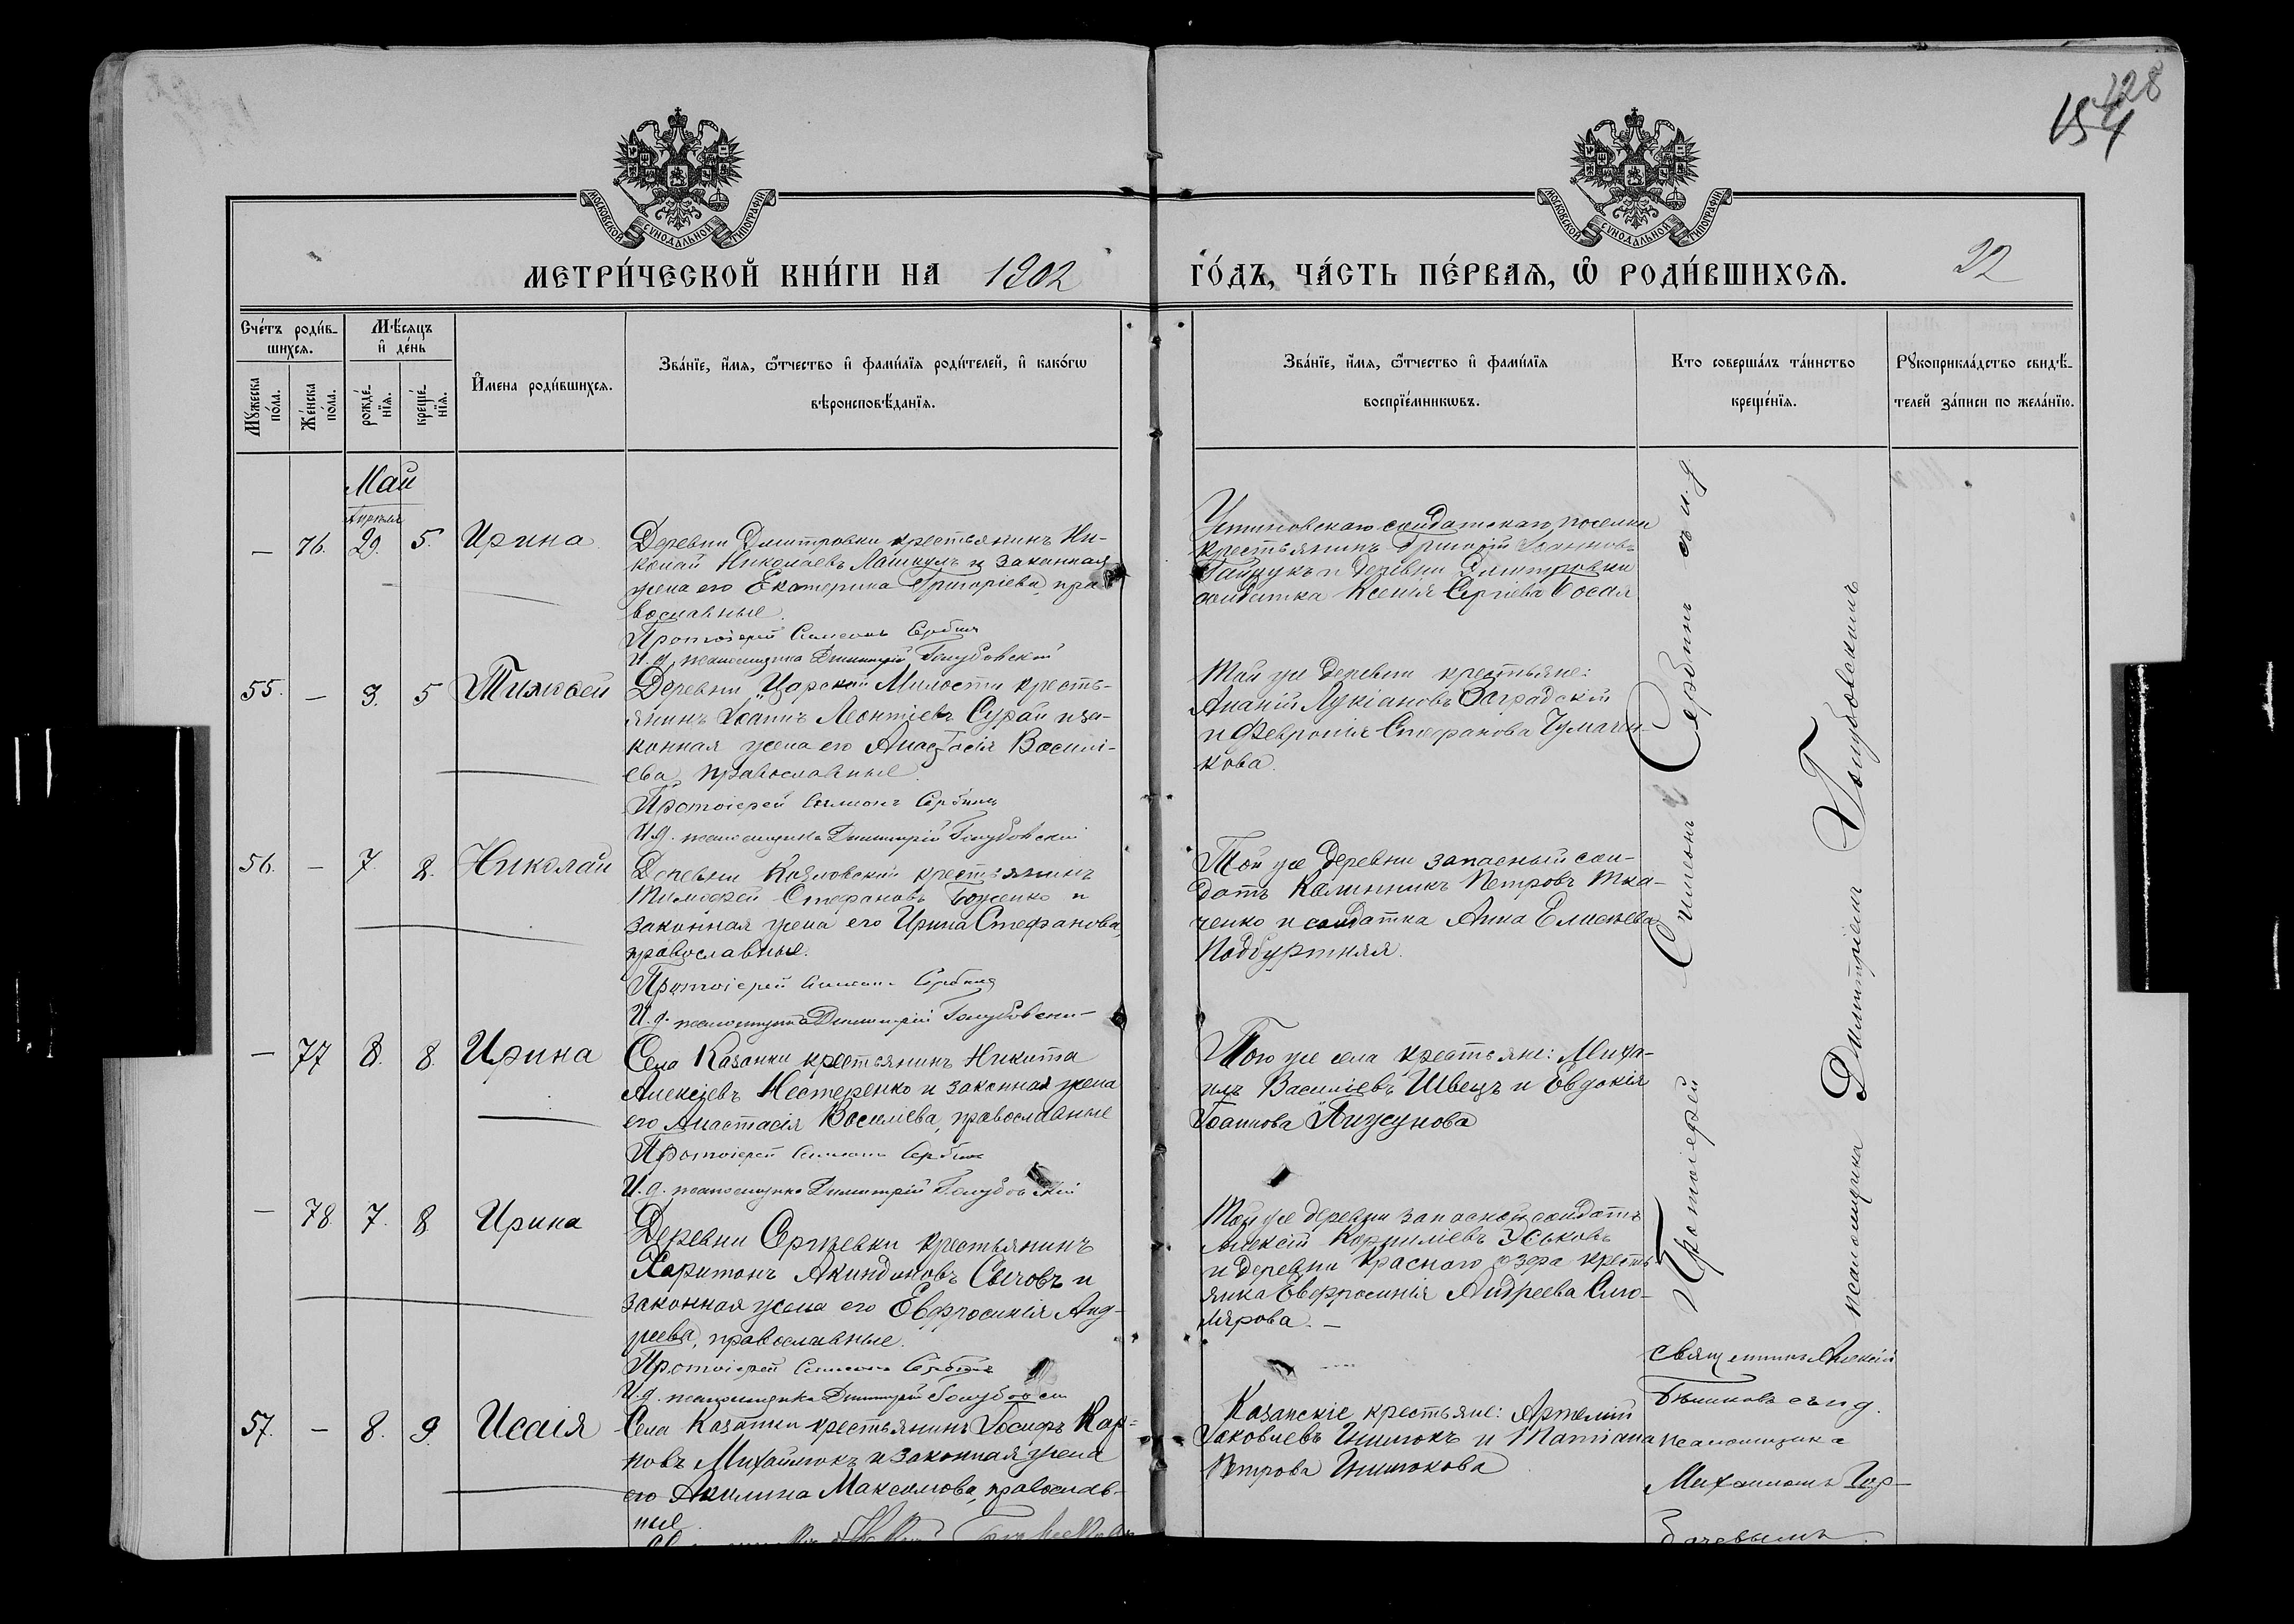 428
154
МОСКОВСКОЙ СѴНОДАЛЬНОЙ ТИПОГРАФІИ.
МОСКОВСКОЙ СѴНОДАЛЬНОЙ ТИПОГРАФІИ.
МЕТРИ́ЧЕСКОЙ КНИ́ГИ НА 1902
ГО́ДЪ, ЧА́СТЬ ПЕ́РВАѦ, Ѽ РОДИ́ВШИХСѦ.
22
Сче́тъ роди́в-
шихсѧ.
Мꙋжеска по́ла.
Же́нска по́ла.
Мѣ́сѧцъ
и҆ де́нь
рожде́-нїѧ.
креще́-нїѧ.
И҆мена роди́вшихсѧ.
Зва́нїе, и҆́мѧ, ѻ҆́тчество и҆ фами́лїѧ роди́телей, и҆ како́гѡ
вѣроисповѣ́данїѧ.
Зва́нїе, и҆́мѧ, ѻ҆́тчество и҆ фами́лїѧ
воспрїе́мникѡвъ.
Кто соверша́лъ та́инство
креще́нїѧ.
Рꙋкоприкла́дство свидѣ́-
телей за́писи по жела́нїю.
Май
Апрѣля
— 76. 29. 5. Ирина
Деревни Дмитровки крестьянинъ Ни-
колай Николаевъ Лашкулъ и законная
жена его Екатерина Григоріева, пра-
вославные.
Протоіерей Симеонъ Сербинъ
И. д. псаломщика Димитрій Голубовскій
Устиновскаго солдатскаго поселка
крестьянинъ Григорій Іоанновъ
Гайдукъ и деревни Дмитровки
солдатка Ксенія Сергіева Косая
55. — 3. 5 Тимофей
Деревни „Царской Милости кресть-
янинъ Іоаннъ Леонтіевъ Сурай и за-
конная жена его Анастасія Василі-
ева, православные.
Протоіерей Симеонъ Сербинъ
И. д. псаломщика Димитрій Голубовскій
Той же деревни крестьяне:
Ананій Лукіановъ Заградскій
и Февронія Стефанова Чумачен-
кова.
56. — 7. 8. Николай
Деревни Козловской крестьянинъ
Тимофей Стефановъ Боженко и
законная жена его Ирина Стефанова,
православные.
Протоіерей Симеонъ Сербинъ
И. д. псаломщика Димитрій Голубовскій
Той же деревни запасный сол-
датъ Калинникъ Петровъ Тка-
ченко и солдатка Анна Елисеева
Подбуртняя.
— 77 8. 8. Ирина
Села Казанки крестьянинъ Никита
Алексіевъ Нестеренко и законная жена
его Анастасія Василіева, православные
Протоіерей Симеонъ Сербинъ
И. д. псаломщика Димитрій Голубовскій
Того же села крестьяне: Миха-
илъ Василіевъ Швецъ и Евдокія
Іоаннова
— 78 7. 8 Ирина
Деревни Сергѣевки крестьянинъ
Харитонъ Акиндиновъ Сычовъ и
законная жена его Евфросинія Анд-
реева, православные.
Протоіерей Симеонъ Сербинъ
И. д. псаломщика Димитрій Голубовскій
Той же деревни запасной солдатъ
Алексій Корниліевъ Уськовъ
и деревни Краснаго озера кресть-
янка Евфросинія Андреева Сто-
лярова. —
57. — 8. 9. Исаія
Села Казанки крестьянинъ Іосифъ Кар-
повъ Михайлюкъ и законная жена
его Акилина Максимова, православ-
ные.
Казанскіе крестьяне: Артемій
Іаковлевъ и Татіана
Петрова
Протоіерей Симеонъ Сербинъ съ и. д.
псаломщика Димитріемъ Голубовскимъ
Священникъ Алексій
съ и д.
псаломщика
Михаиломъ Гор-
бачевымъ.